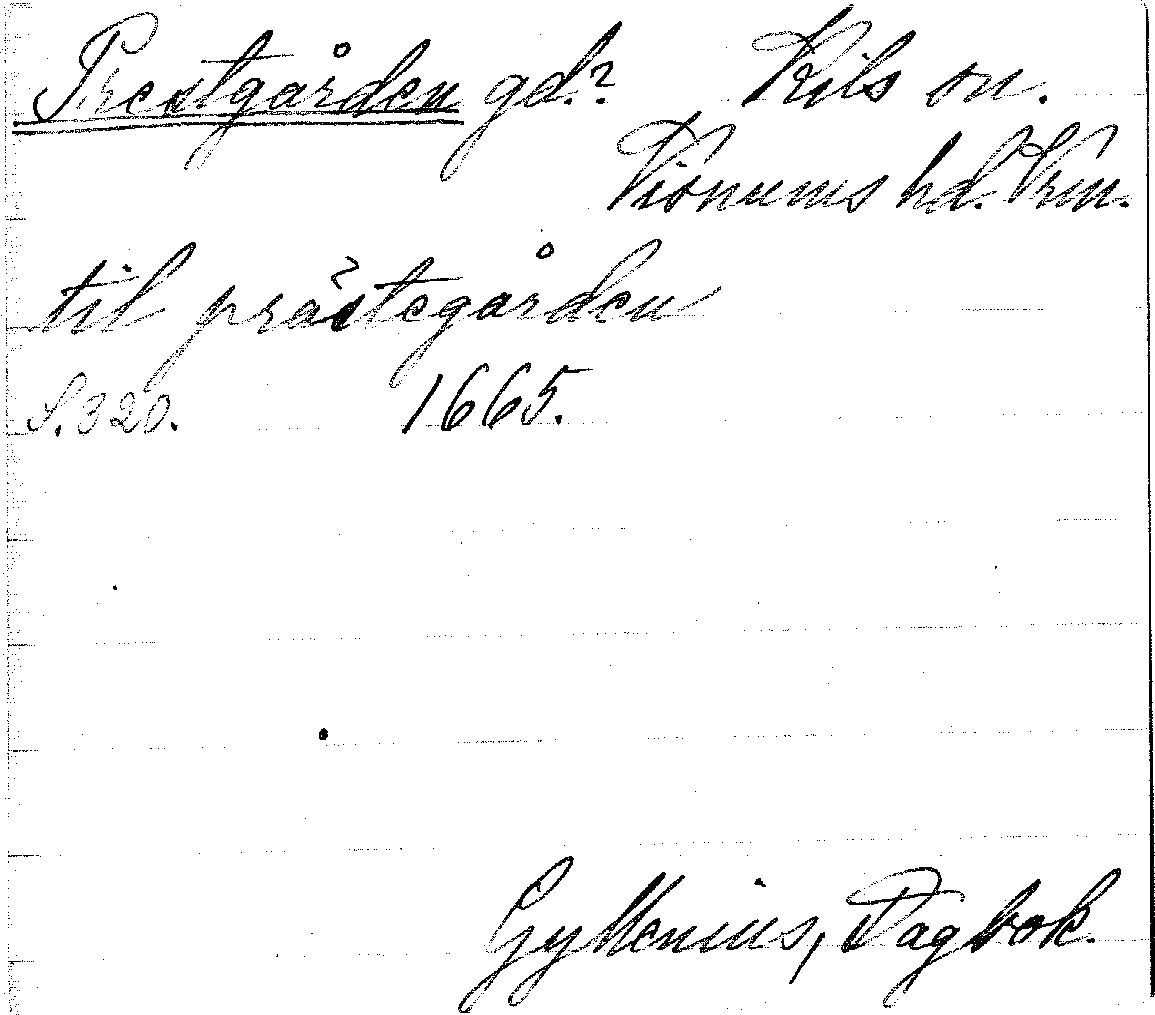 Prestgården gd.? Kils sn.
Visnums hd. Vrm.
til prästegården
S. 320. 1665.
Gyllenius, Dagbok.